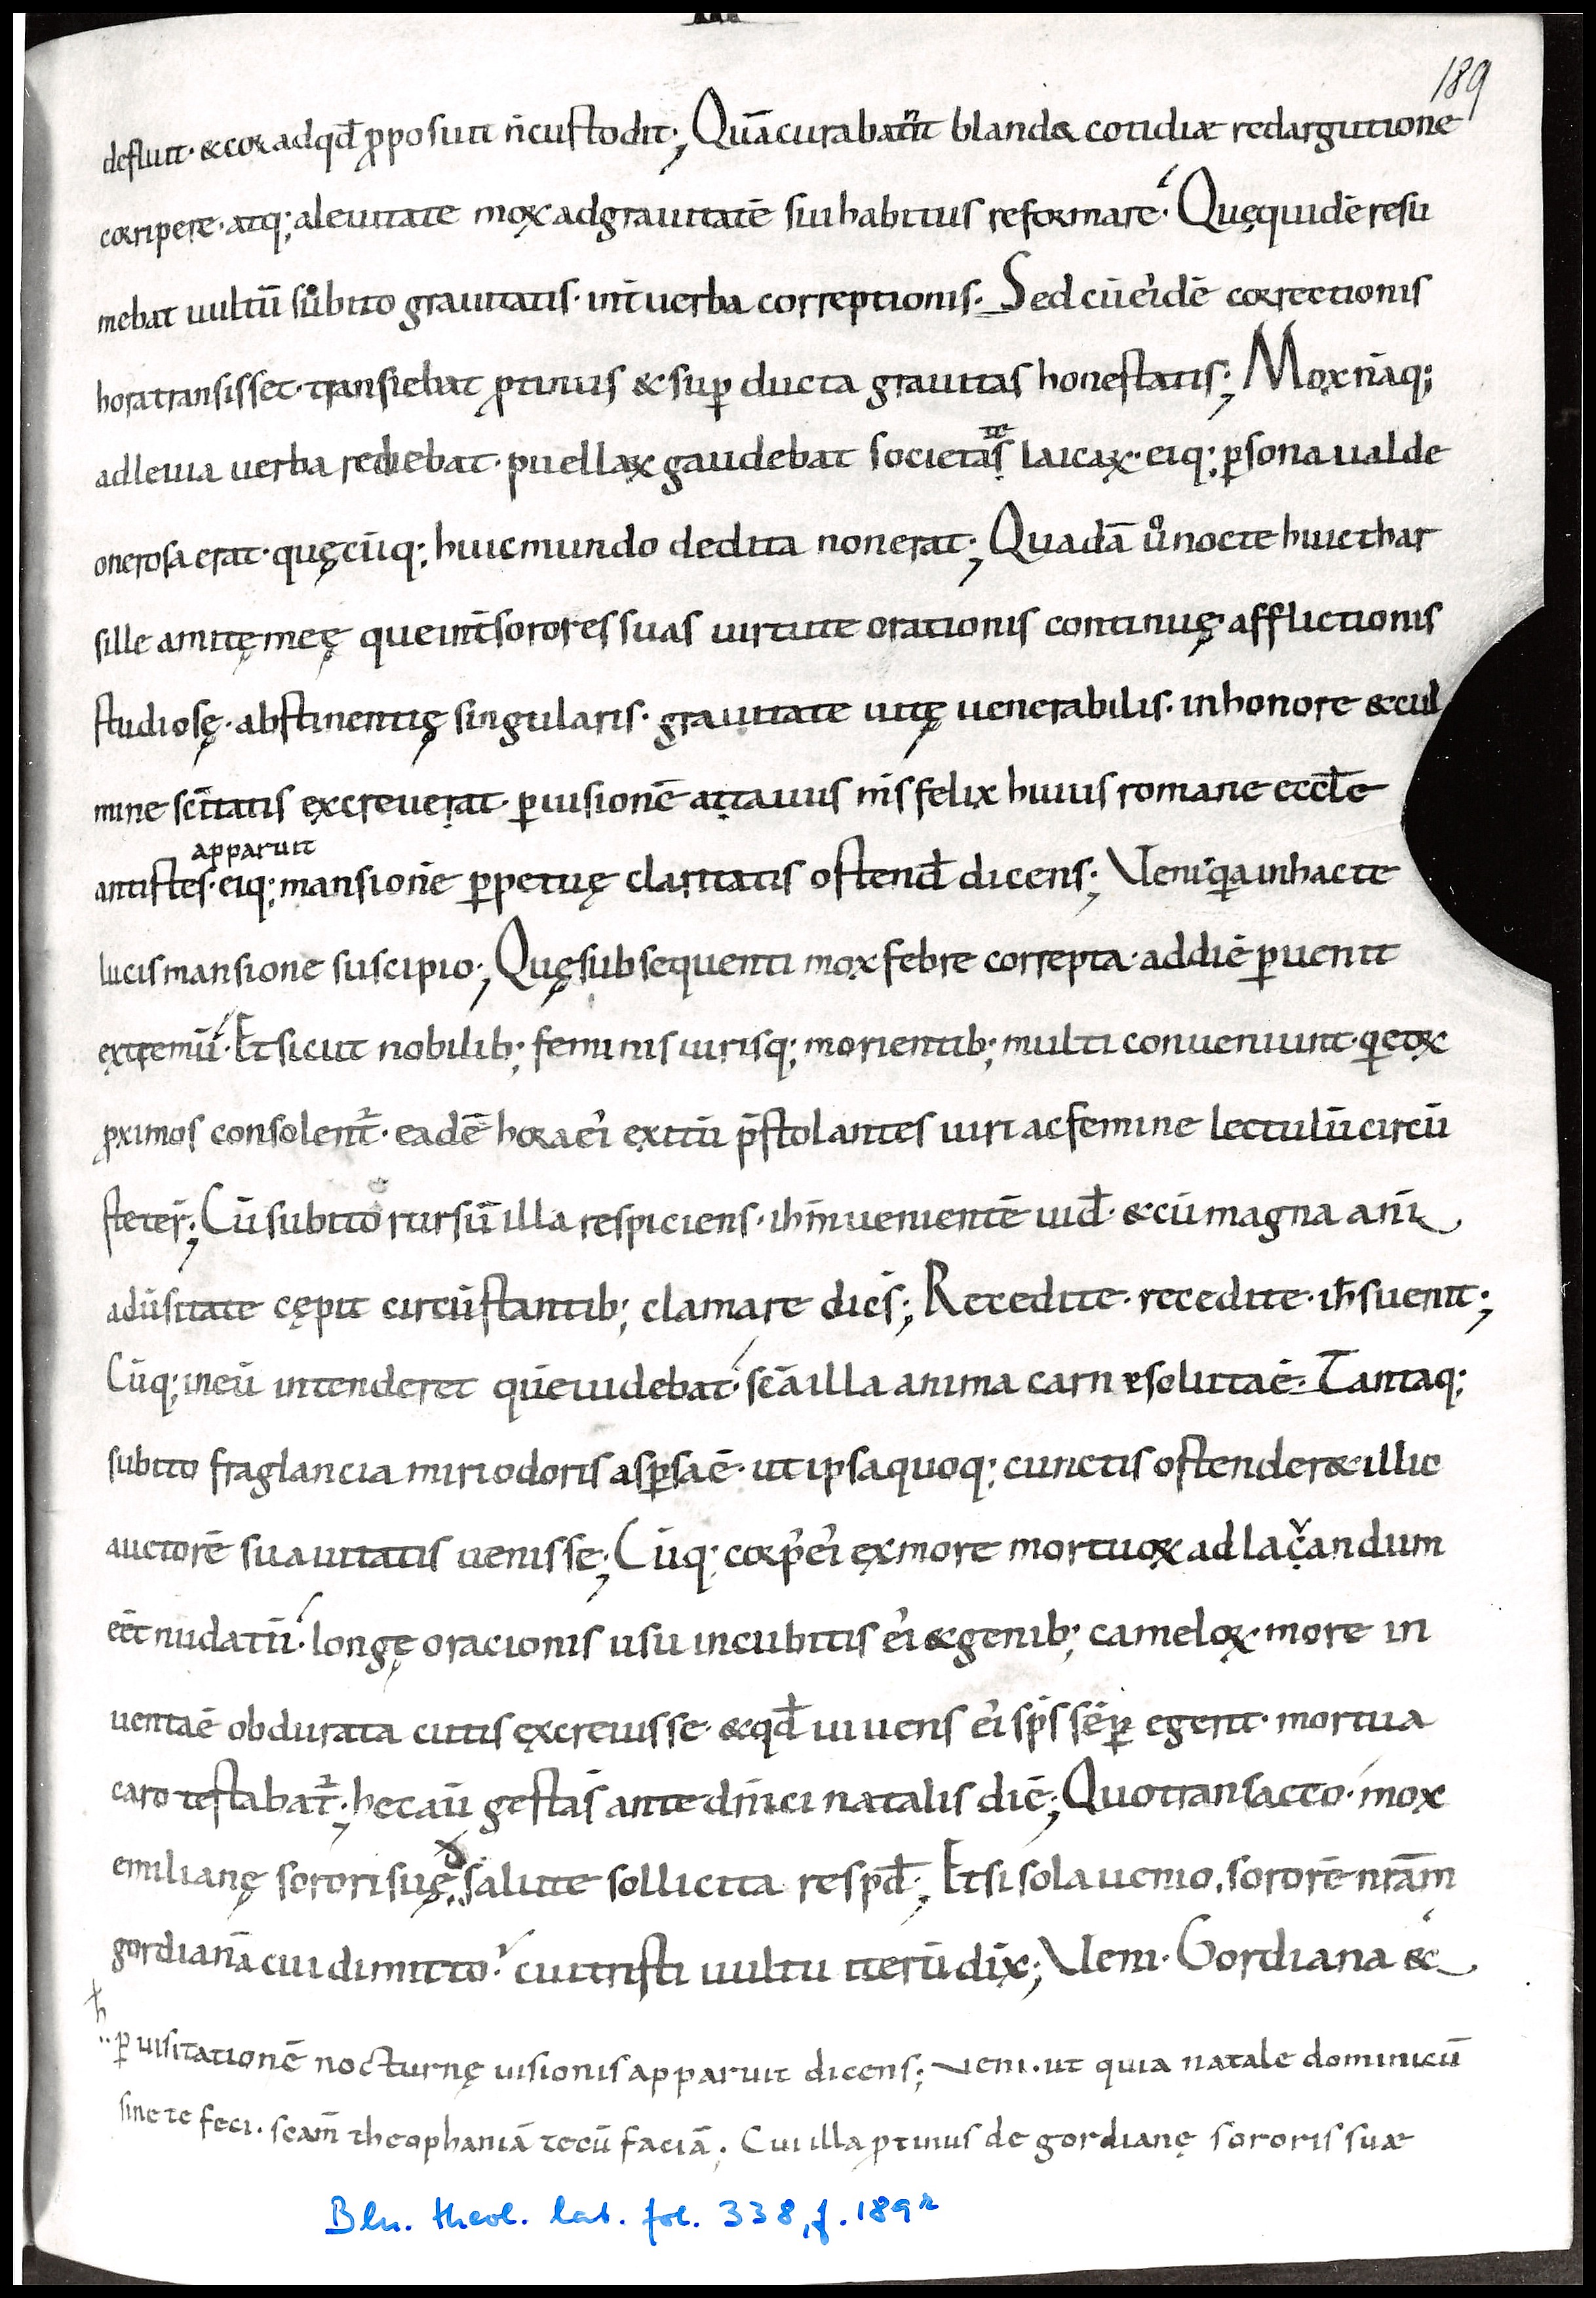 189
defluit· & cor adqd̄ p̱posuit n̄ custodit; Quā curabant blande & cotidiæ redargutione
corripere· atq; aleuitate mox adgrauitatē sui habitus reformare· Quęquidē resu
mebat uultū subito grauitatis· int̄ uerba correptionis· Sed cū ei'dē correctionis
hora transisset· transiebat p̱tinus & sup̱ ducta grauitas honestatis; Mox nāq;
adleuia uerba rediebat· puellaꝝ gaudebat societate laicaꝝ· eiq; p̱sona ualde
onerosa erat· quęcūq; huic mundo dedita non erat; Quadā uº nocte huic thar
sille amitę meę que int̄ sorores suas uirtute orationis continuę· afflictionis
studiosę· abstinentię singularis· grauitate uitę uenerabilis· inhonore & cul
mine sc̄itatis excreuerat· p̱uisionē attauus m̄s felix huius romane eccl̄e
apparuit
antistes· eiq; mansionē p̱petuę claritatis ostend̄ dicens; Veni· q̱a inhac te
lucis mansione suscipio; Quę subsequenti mox febre correpta· addiē p̱uenit
extremū· Et sicut nobilib; feminis uirisq; morientib; multi conueniunt· q̱ eoꝝ
p̱ximos consolent̄· eadē hora ei' exitū p̄stolantes uiri ac femine lectulū circū
steter̄; Cū subito rursū illa respiciens· ih̄m uenientē uid̄· & cū magna anī
aduˉsitate cępit circūstantib; clamare dic̄s; Recedite· recedite· ih̄s uenit;
Cūq; ineū intenderet quē uidebat· sc̄a illa anima carne soluta ē· Tantaq;
subito fraglancia miri odoris asp̱sa ē· ut ipsa quoq; cunctis ostender& illic
auctorē suauitatis uenisse; Cūq; corp' ei' ex more mortuoꝝ ad lauandum
eēt nudatū· longę oracionis usu incubitis ei' & genib; cameloꝝ· more in
uenta ē obdurata cutis excreuisse· & qd̄ uiuens ei' sp̄s sēp̱ egerit· mortua
caro testabat̄; hec aū gesta s̄ ante dn̄ici natalis diē; Quo transacto· mox
emilianę sorori suę salute sollicita resp̱d̄; Et si sola uenio, sororē nrām
gordianā cui dimitto? cui tristi uultu iterū dix̄; Veni· Gordiana &
ħ
p̱ uisitationē nocturnę uisionis apparuit dicens; Veni· ut quia natale dominicū
sine te feci· scam̄ theophaniā tecū faciā; Cui illa p̱tinus de gordianę sororis suæ
Bln. theol. lat. fol. 338, f. 189ʳ